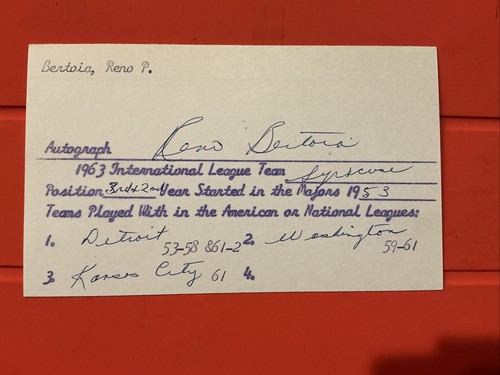 Bertoia, Reno P.
Autograph Reno Bertoia
1963 International League Team Syracuse
Position 3rd & 2nd Year Started in the Majors 1953
Teams Played With in the American or National Leagues:
1. Detroit 53-58 & 61-2 2. Washington 59-61
3. Kansas City 61 4.